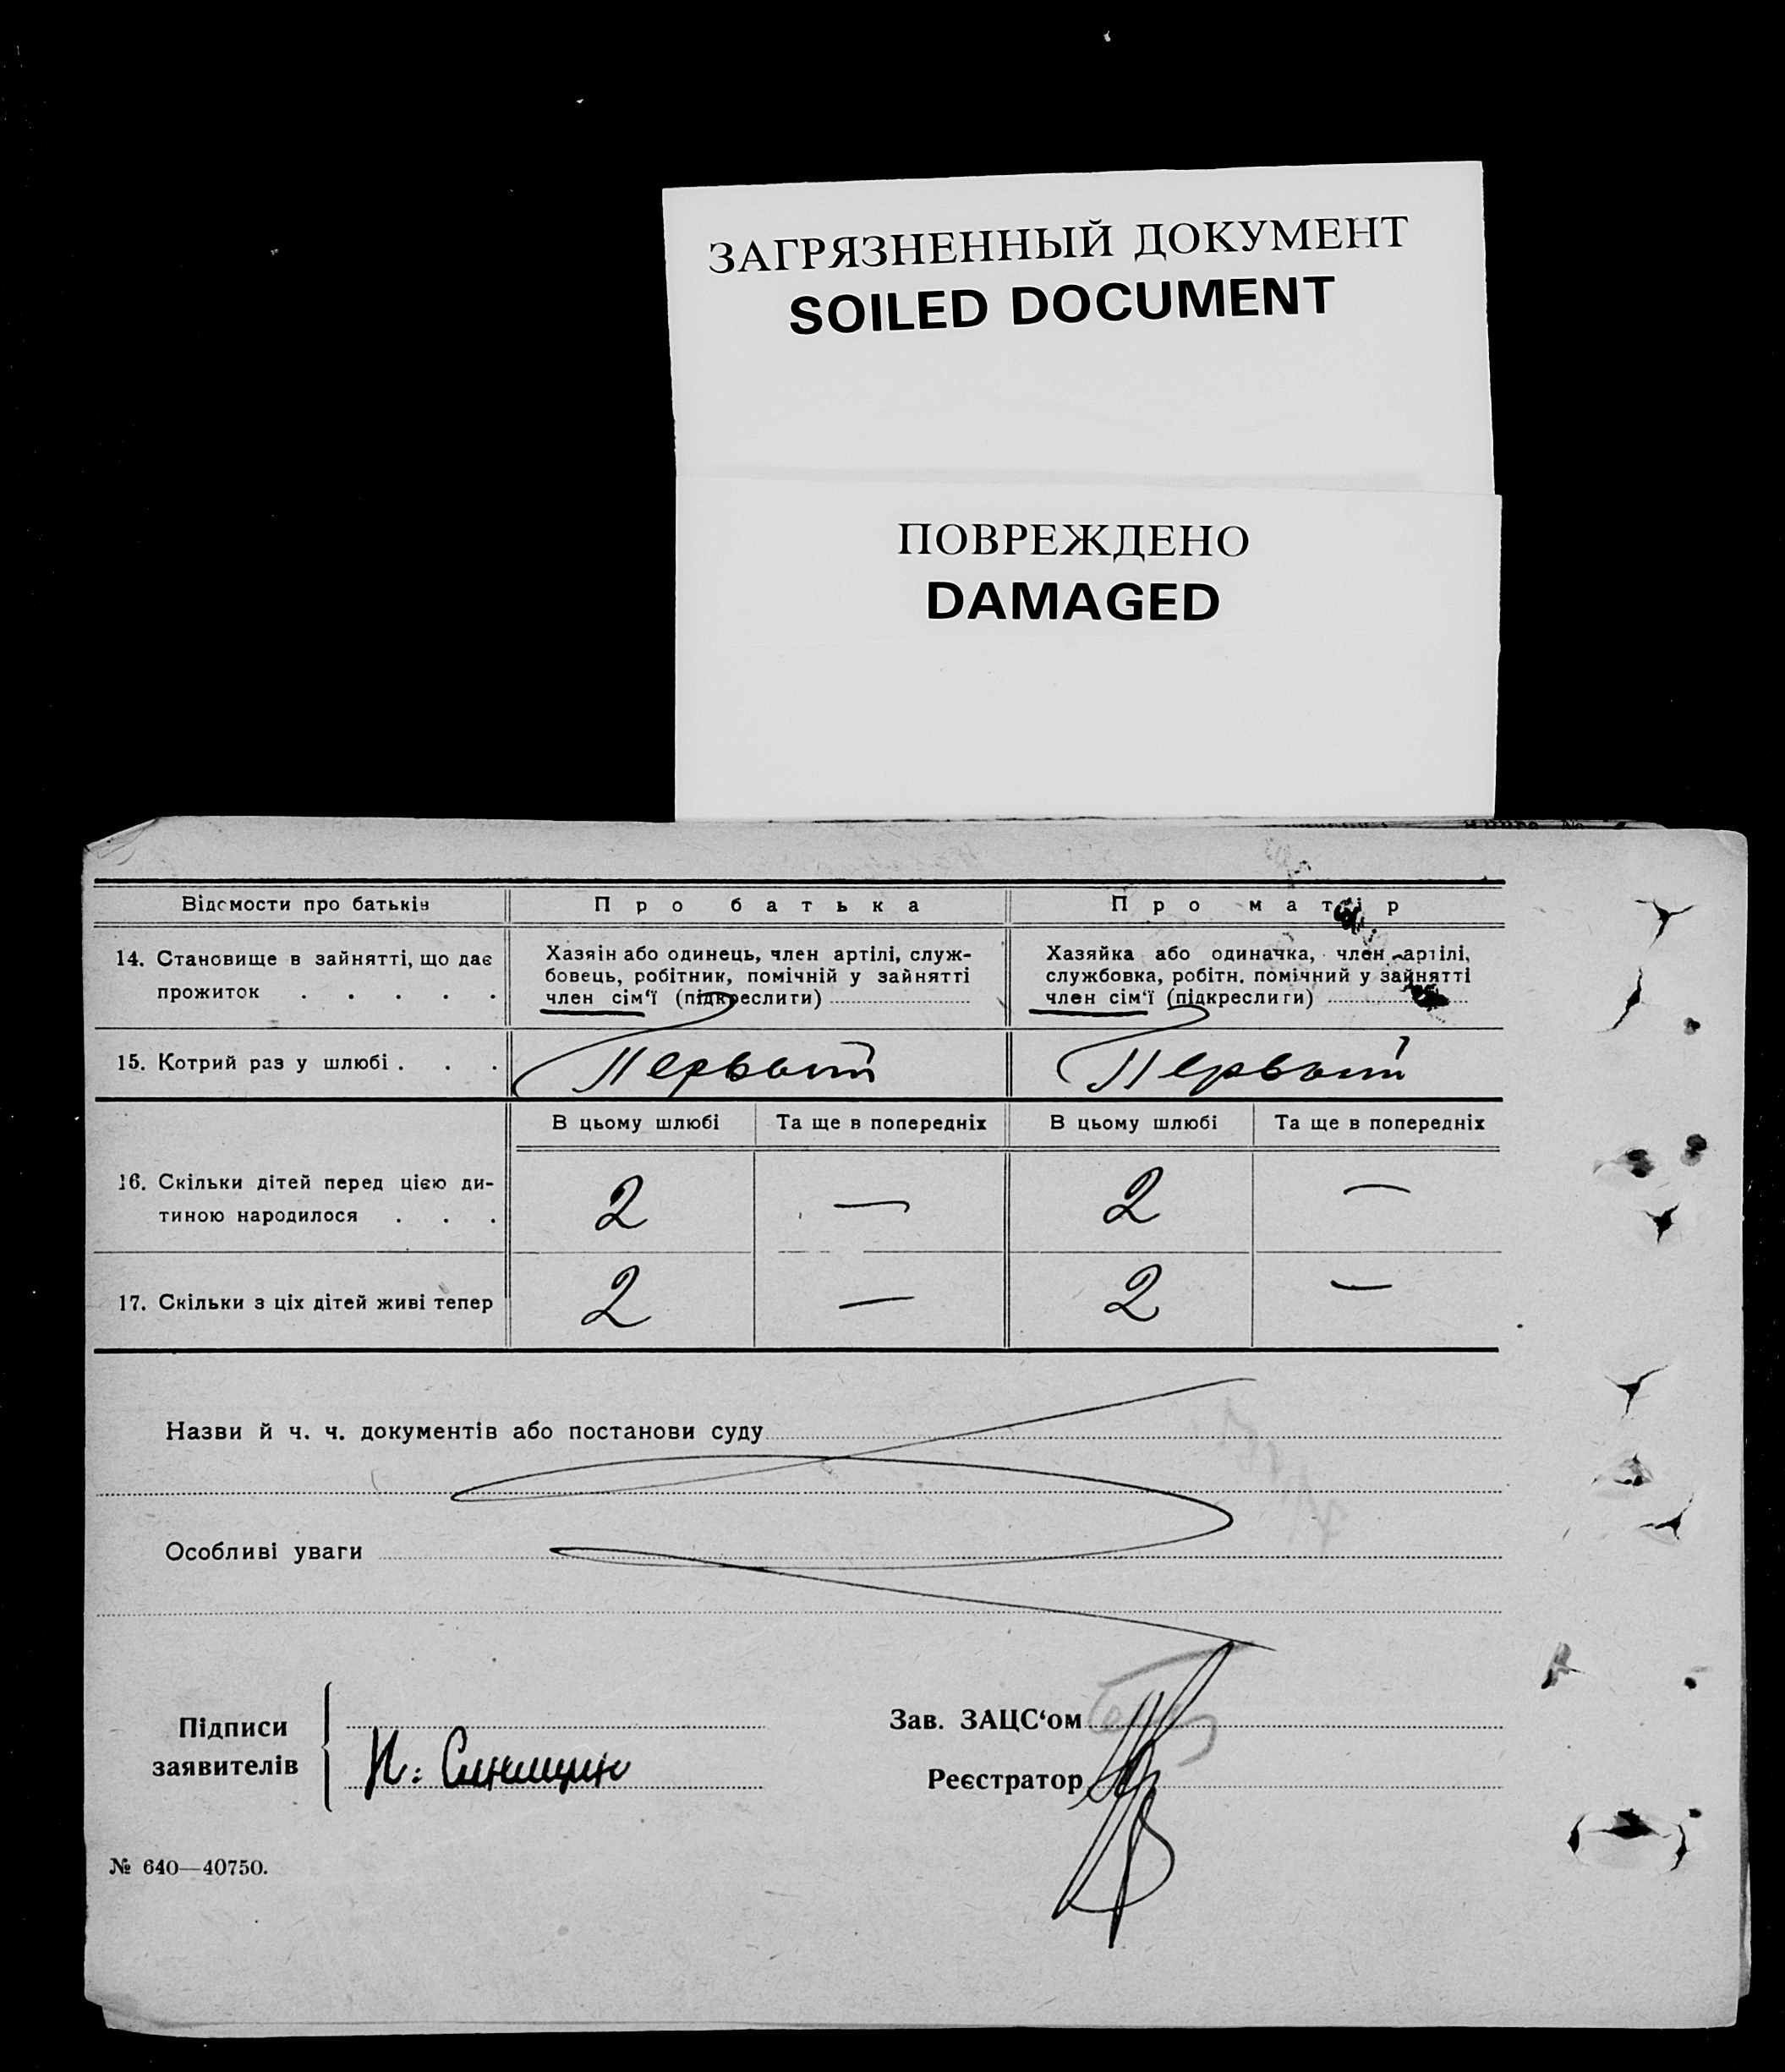 ЗАГРЯЗНЕННЫЙ ДОКУМЕНТ
SOILED DOCUMENT
ПОВРЕЖДЕНО
DAMAGED
Відомости про батьків
Про батька
Про матір
14. Становище в зайнятті, що дає
прожиток . . . . .
Хазяін або одинець, член артілі, служ-
бовець, робітник, помічній у зайнятті
член сім‘ї (підкреслити)
Хазяйка або одиначка, член артілі,
службовка, робітн. помічний у зайнятті
член сім‘ї (підкреслити)
15. Котрий раз у шлюбі . . .
Первый
Первый
В цьому шлюбі
Та ще в попередніх
В цьому шлюбі
Та ще в попередніх
16. Скільки дітей перед цією ди-
тиною народилося . . .
2 — 2 —
17. Скільки з ціх дітей живі тепер
2 — 2 —
Назви й ч. ч. документів або постанови суду
Особливі уваги
Підписи
заявителів
Зав. ЗАЦС‘ом
Реєстратор
№ 640—40750.